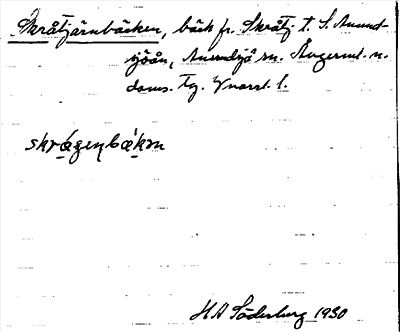 Skråtjärnbäcken, bäck fr. Skråtj t. S. Anund-
sjöån, Anundsjö sn. Ångerml. n.
doms. tg. Vnorrl. l.
skrágenbákɐn
H A Söderberg 1930